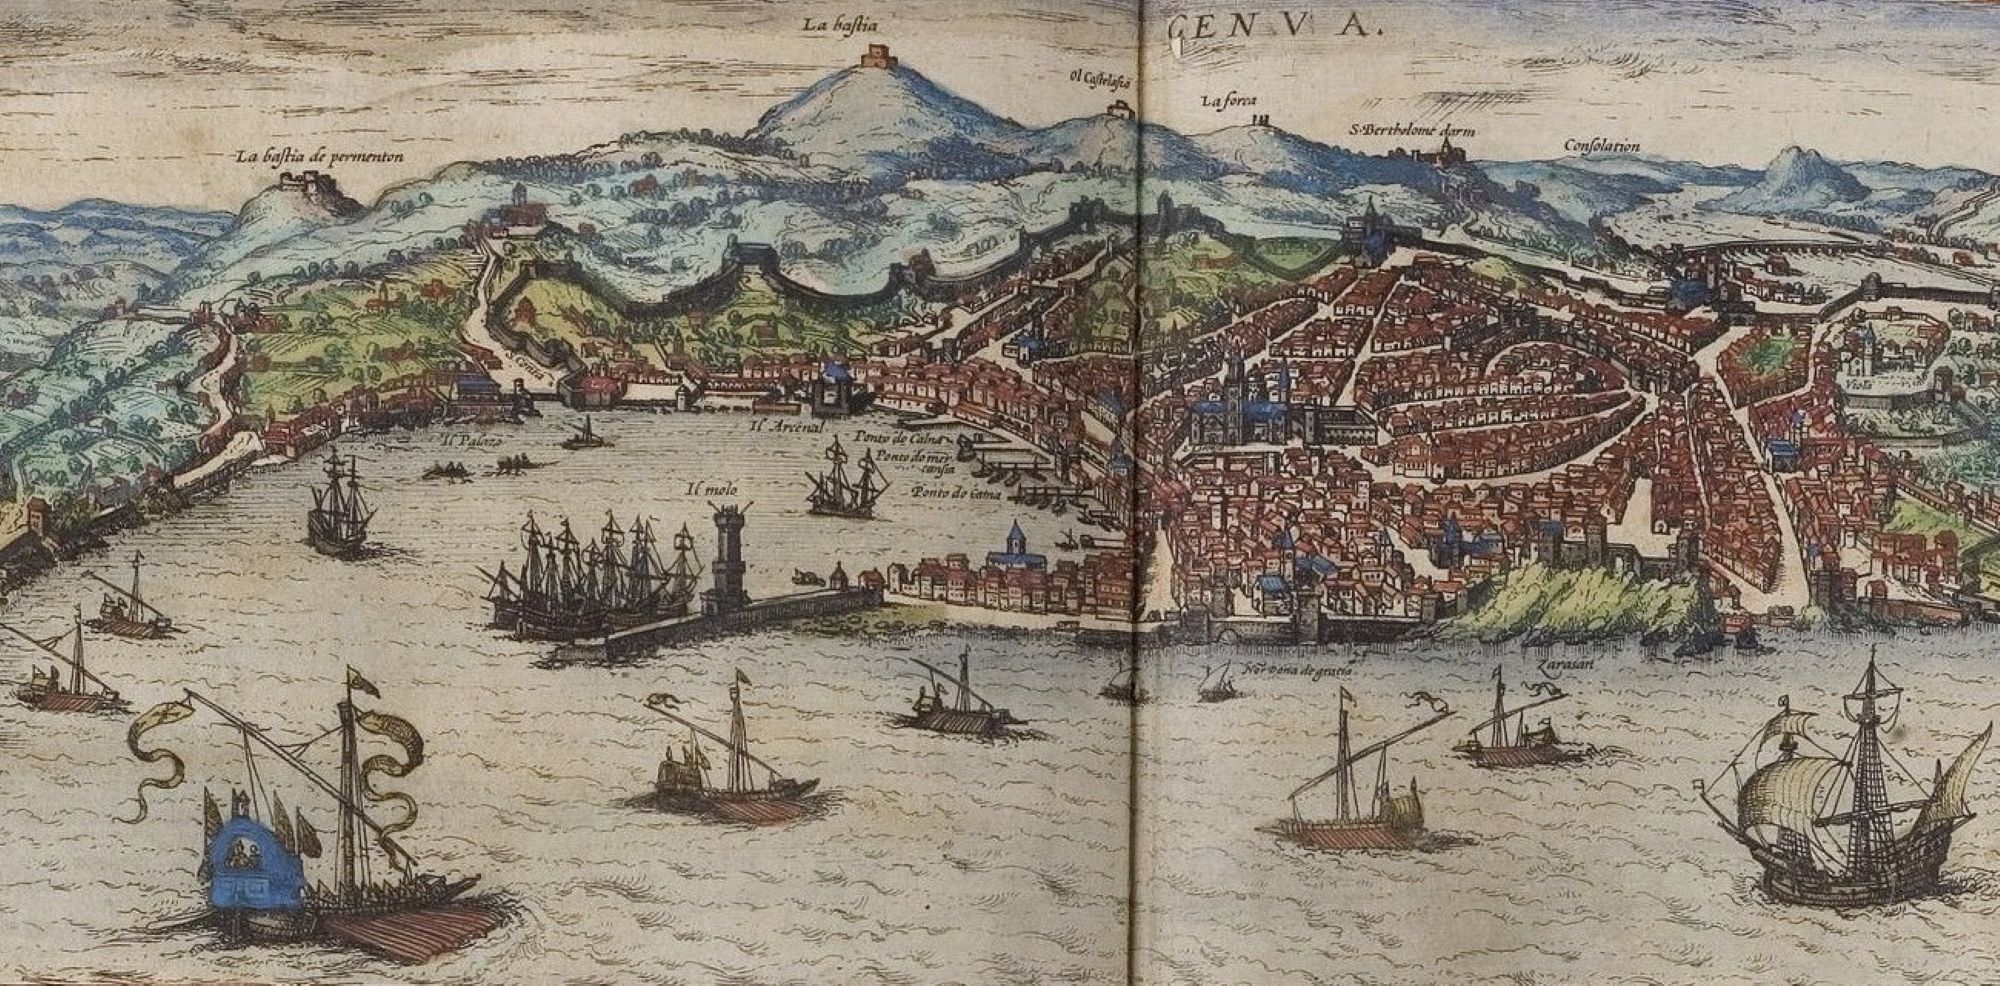 GENVA.
La bastia
ol Castelaso
La forca
S. Bertholome darm
Consolation
La bastia de permenton
S. Conta
Viole
Il Palazo
Il Arcenal
Ponto de Calna
Ponto do mer
cansia
Ponto do Calna
Il molo
Nor Dona de gratia
Zarasan